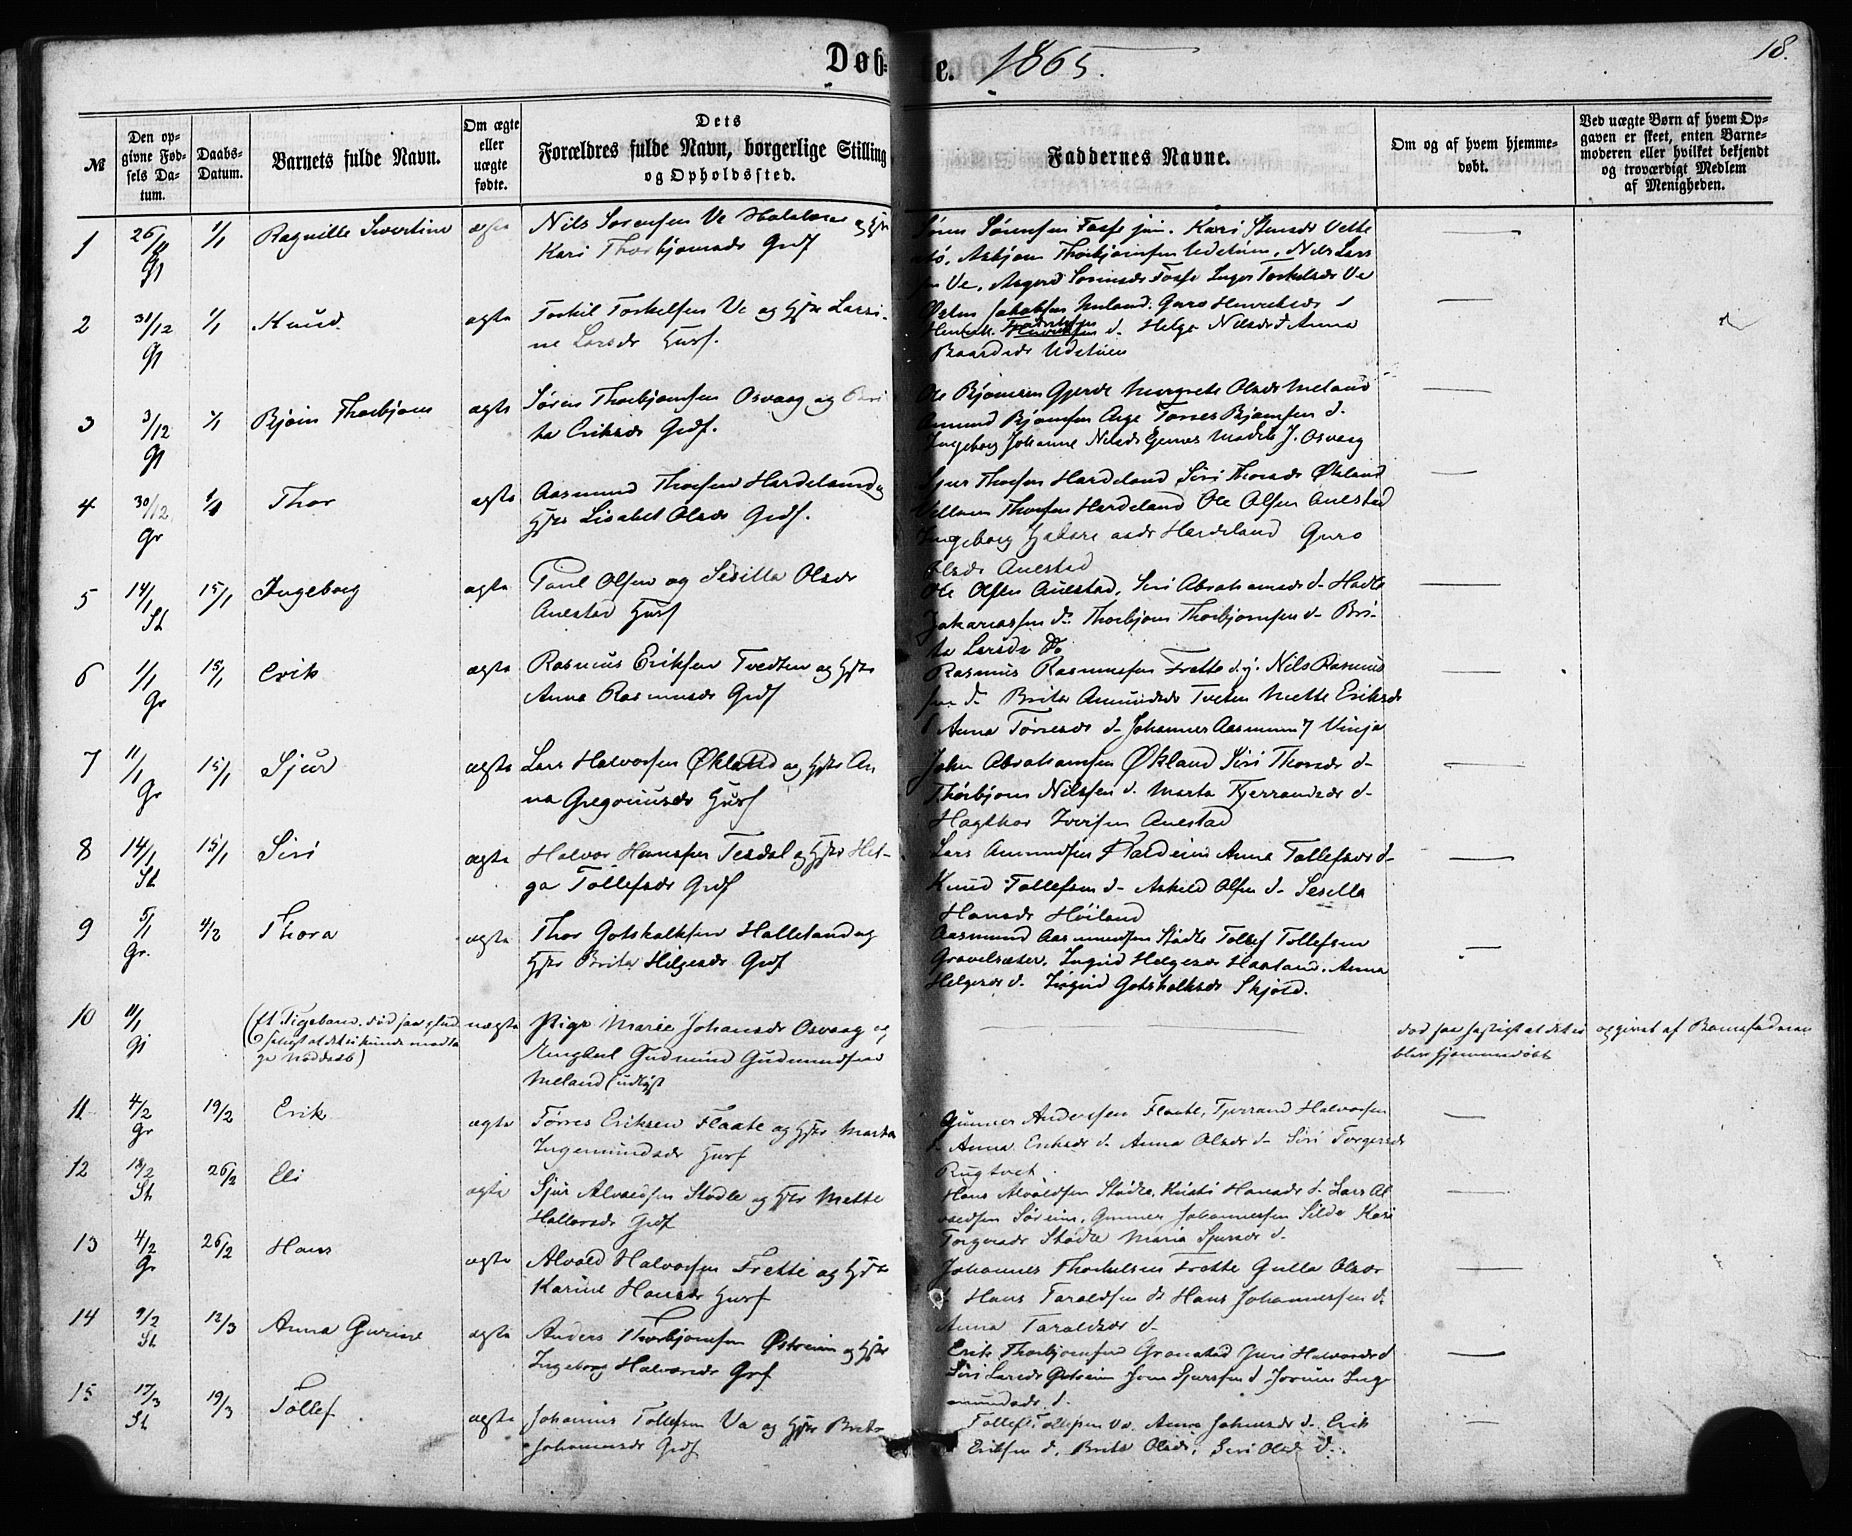 Døb-
te. 1865.
18.
№
Den op-
givne Fød-
sels Da-
tum.
Daabs-
Datum.
Barnets fulde Navn.
Om ægte
eller
uægte
fødte.
Dets
Forældres fulde Navn, borgerlige Stilling
og Opholdssted.
Faddernes Navne.
Om og af hvem hjemme-
døbt.
Ved uægte Børn af hvem Op-
gaven er skeet, enten Barne-
moderen eller hvilket bekjendt
og troværdigt Medlem
af Menigheden.
1 26/12 1/1 Ragnille Sivertine ægte Nils Sørensen Ve
Kari Thorbjørnsdr Grdf
Søren Sørensen Fosse jun. Kari Stensdr Vette
Asbjørn Thorbjørnsen Udetuin, Nils Lars
sen Ve, Asgerd Sørensdr Fosse Inger Torkelsdr Ve
2 31/12 1/1 Knud ægte Torkil Torkelsen Ve og Hstr Larsi-
ne Larsdr Husf.
Jakobsen Meland. Guro Henriksdr d
Helge Nilsdr d Anna
Baardsdr Udetuin
3 3/12 1/1 Bjørn Thorbjørn ægte Søren Thorbjørnsen Osvaag og Bri
ta Eriksdr Grdf.
Ole Bjørnsen Gjerde Margrete Olsdr Meland
Amund Bjørnsen Torres Bjørnsen d.
Ingeborg Johanne Nilsdr J. Osvaag
4 30/12 Gr 1/1 Thor ægte Aasmund Thorsen Hardeland og
Hstr Lisabet Olsdr Grdf.
Sjur Thorsen Hardeland Siri Thorsdr Økland
Thorsen Hardeland Ole Olsen Auestad
Ingeborg Hardeland Guro
Olsdr Auestad
5 14/1 St 15/1 Ingeborg ægte Poul Olsen og Sisilla Olsdr
Auestad Husf
Ole Olsen Auestad, Siri Abrahamsdr d- Hadle
Zakariassen do Thorbjørn Thorbjørnsen d- Bri-
ta Larsdr do
6 1/1 Gr 15/1 Erik ægte Rasmus Eriksen Tvedten og Hstr
Anna Rasmusdr Grdf
Rasmus Rasmussen Frette d.y. Nils Rasmus
sen d- Brita Amundsdr Tveten Mette Eriksdr
d Anna Tørresdr d- Johannes Aasmunds Vinja
7 11/1 Gr 15/1 Sjur ægte Lars Halvorsen Økland og Hstr An
na Gregoriusdr Husf
John Abrahamsen Økland Siri Thorsdr d-
Thorbjørn Nilssen d. Marta Tjerrandsdr d-
Hagthor Iversen Auestad
8 14/1 St 15/1 Siri ægte Halvor Hanssen Tesdal og Hstr Hel-
ga Tollefsdr Grdf
Lars Amundsen Anna Tollefsdr d-
Knud Tollefsen d- Askild Olsen d- Sesilla
Hansdr Høiland
9 5/1 Gr. 4/2 Thora ægte Thor Gotskalksen Halleland og
Hstr Brita Helgesdr Grdf
Aasmund Aasmundsen Stødle Tollef Tollefsen
Gravelsæter, Ingrid Helgesdr Haaland, Anna
Helgesdr d. Ingrid Gotskalksdr Skjold.
10 11/1 (Et Pigebarn, død saa
at det ei kunde modta
ge Nøddaab)
uægte Pige Marie Johansdr Osvaag og
Ungkarl Gudmund Gudmundsen
Meland
død saa hastigt at det ei
blev hjemmedøbt
opgivet af Barnefaderen
11 4/2 Gr 19/2 Erik ægte Tørres Eriksen Flaate og Hstr Marta
Ingemundsdr Husf
Gunner Andersen Flaate, Tjerrand Halvorsen
d- Anna Eriksdr d- Anna Olsdr d- Siri Torgersdr
Rugtvet.
12 18/2 St 26/2 Eli ægte Sjur Alvaldsen Stødle og Hstr Mette
Hallorsdr Grdf
Hans Alvaldsen Stødle, Kristi Hansdr d- Lars Al
valdsen Søreim, Gunner Johannessen Silde Kari
Torgersdr Stødle Maria Sjursdr d.
13 4/2 Gr 26/2 Hans ægte Alvald Halvorsen Frette og Hstr
Karine Hansdr Husf
Johannes Thorkelsen Frette Gulla Olsdr
d Hans Taraldsen do Hans Johannessen d.
Anna Taraldsdr d-
14 9/2 St 12/3 Anna Gurine ægte Anders Thorbjørnsen Østreim og Hstr
Ingeborg Halvorsdr Grdf
Erik Thorbjørnsen Grønstad Guri Halvorsdr d
Siri Larsdr Østreim Jon Sjurssen d Inge
mundsdr d.
15 17/3 St 19/3 Tollef ægte Johannes Tollefsen Va og Hstr Brita
Johannesdr Grdf
Tollef Tollefsen Va. Anna Johnsdr d- Erik
Eriksen d. Brita Olsdr, Siri Olsdr d.